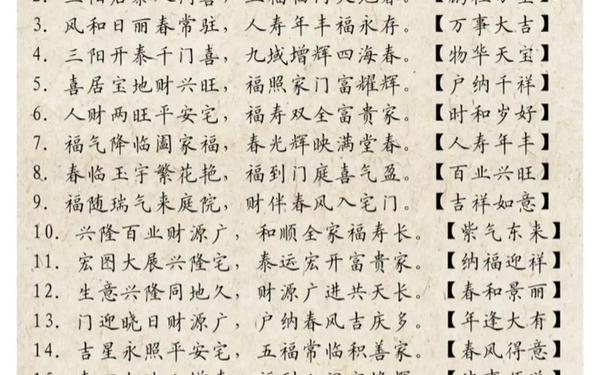 3. 风和日丽春常驻，人寿年丰福永存。【万事大吉】
4. 三阳开泰千门喜，九域增辉四海春。【物华天宝】
5. 喜居宝地财兴旺，福照家门富耀辉。【户纳千祥】
6. 人财两旺平安宅，福寿双全富贵家。【时和岁好】
7. 福气降临阖家福，春光辉映满堂春。【人寿年丰】
8. 春临玉宇繁花艳，福到门庭喜气盈。【百业兴旺】
9. 福随瑞气来庭院，财伴春风入宅门。【吉祥如意】
10. 兴隆百业财源广，和顺全家福寿长。【紫气东来】
11. 宏图大展兴隆宅，泰运宏开富贵家。【纳福迎祥】
12. 生意兴隆同地久，财源广进共天长。【春和景丽】
13. 门迎晓日财源广，户纳春风吉庆多。【年逢大有】
14. 吉星永照平安宅，五福常临积善家。【春风得意】